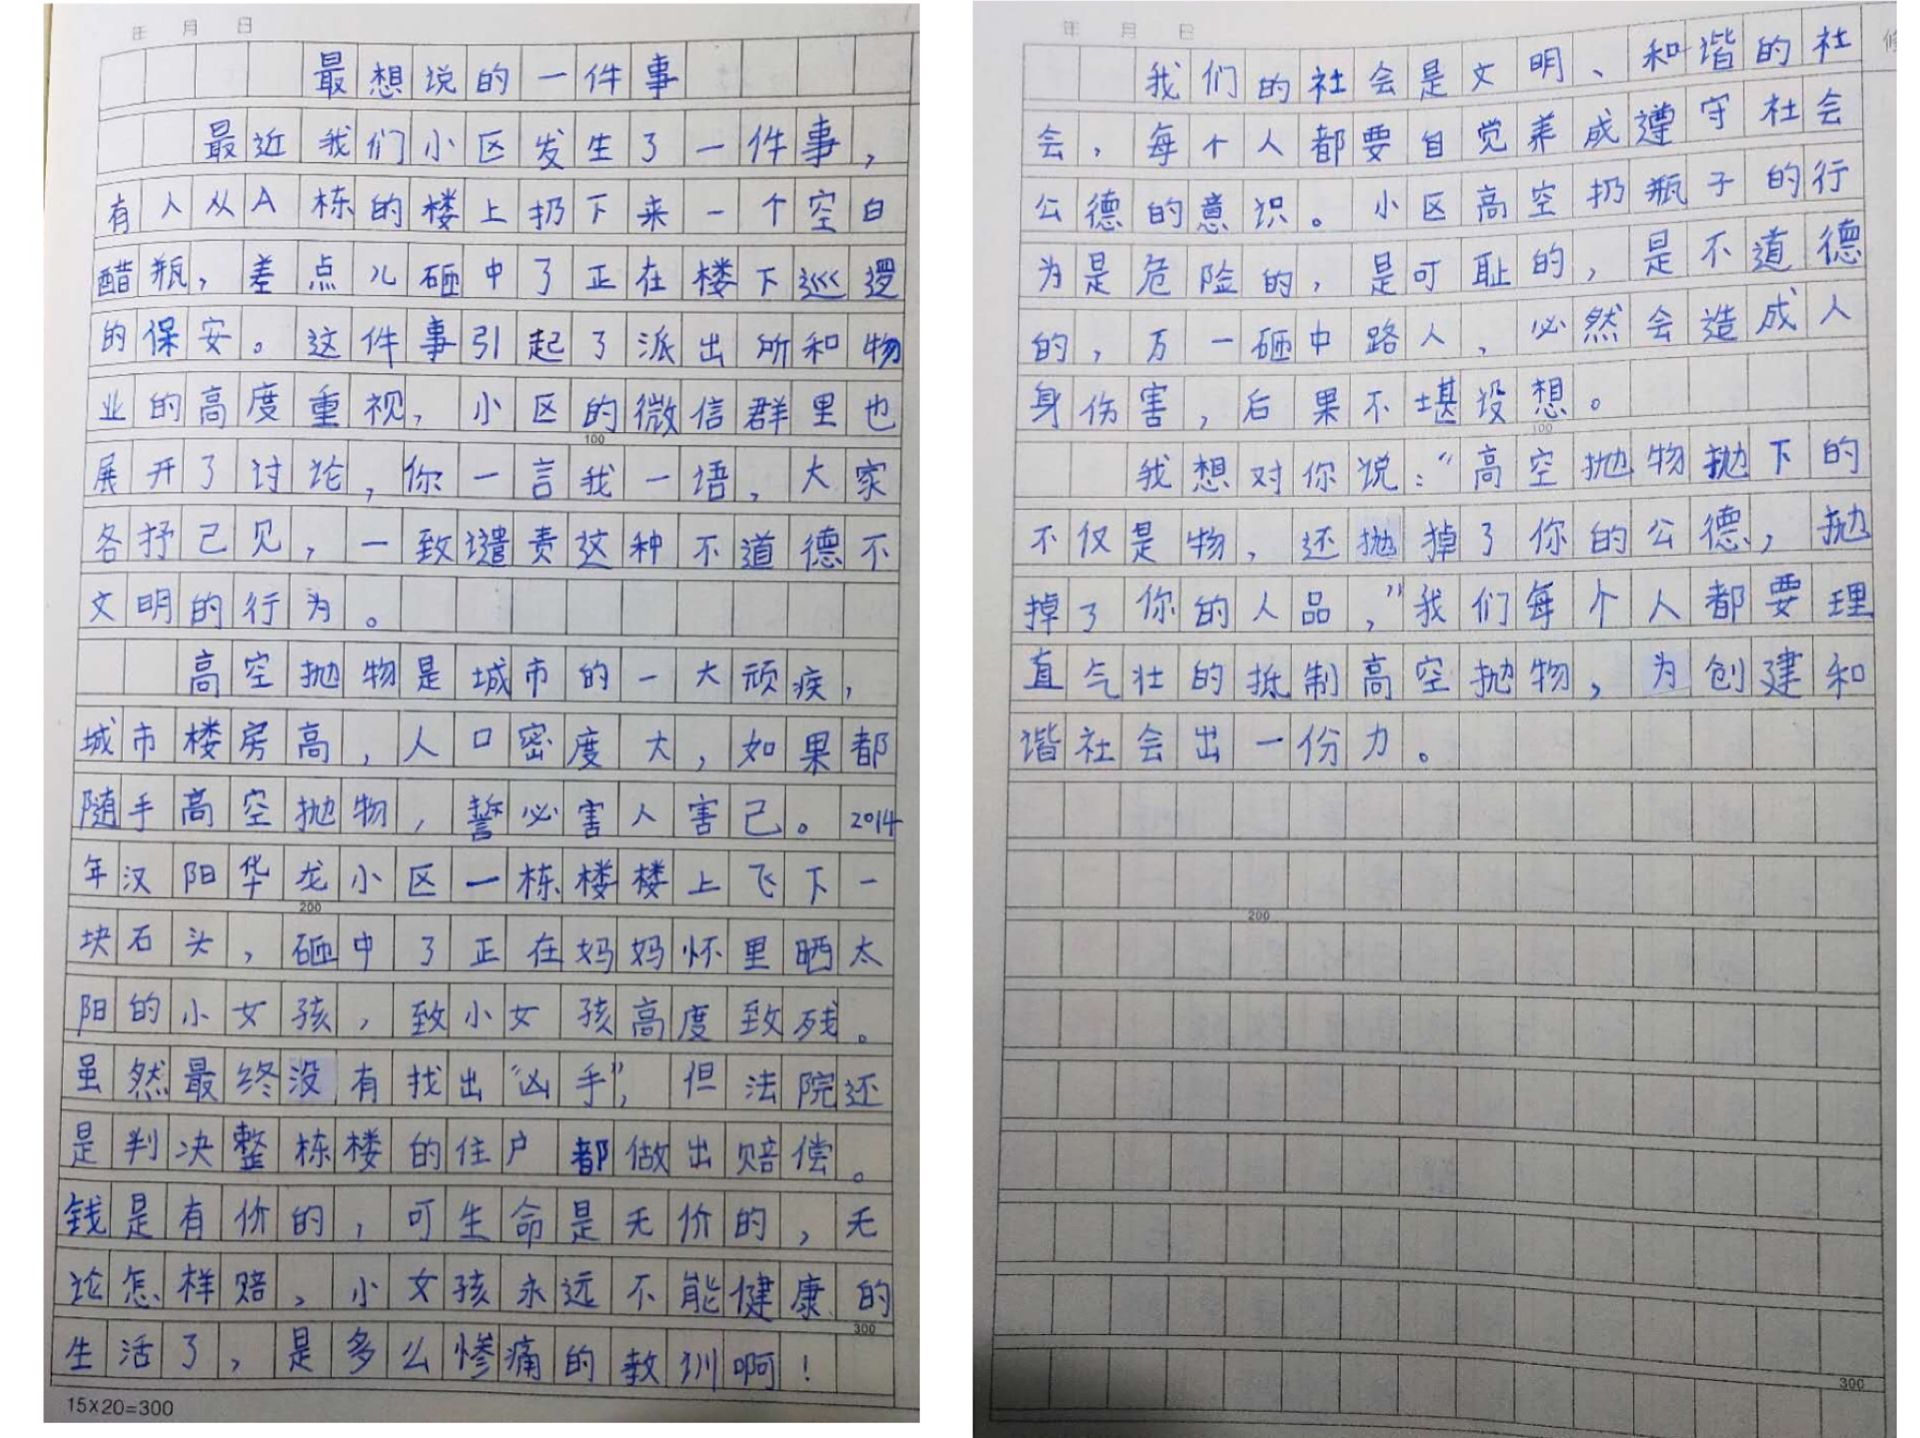 年 月 日
最想说的一件事
最近我们小区发生了一件事，
有人从A栋的楼上扔下来一个空白
醋瓶，差点儿砸中了正在楼下巡逻
的保安。这件事引起了派出所和物
业的高度重视，小区的微信群里也
100
展开了讨论，你一言我一语，大家
各抒己见，一致谴责这种不道德不
文明的行为。
高空抛物是城市的一大顽疾，
城市楼房高，人口密度大，如果都
随手高空抛物，誓必害人害己。2014
年汉阳华龙小区一栋楼楼上飞下一
200
块石头，砸中了正在妈妈怀里晒太
阳的小女孩，致小女孩高度致残。
虽然最终没有找出“凶手”，但法院还
是判决整栋楼的住户都做出赔偿。
钱是有价的，可生命是无价的，无
论怎样赔，小女孩永远不能健康的
300
生活了，是多么惨痛的教训啊！
15×20=300
年 月 日
我们的社会是文明、和谐的社
会，每个人都要自觉养成遵守社会
公德的意识。小区高空扔瓶子的行
为是危险的，是可耻的，是不道德
的，万一砸中路人，必然会造成人
身伤害，后果不堪设想。
100
我想对你说：“高空抛物抛下的
不仅是物，还抛掉了你的公德，抛
掉了你的人品，”我们每个人都要理
直气壮的抵制高空抛物，为创建和
谐社会出一份力。
200
300